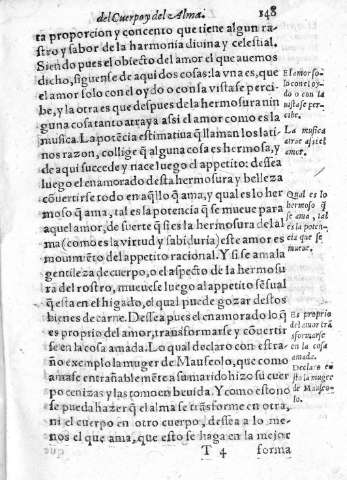 del Cuerpo y del Alma. 148
ta proporcion y concento que tiene algun ra-
stro y sabor de la harmonia diuina y celestial.
Siendo pues el obiecto del amor el que auemos
dicho, siguense de aqui dos cosas: la vna es, que
el amor solo con el oydo o con sa vista se perci-
be, y la otra es que despues de la hermosura nin
guna cosa tanto atrayâ assi el amor como es la
musica. La potẽcia estimatiua q̃ llaman los lati-
nos razon, collige q̃ alguna cosa es hermosa, y
de aqui succede y nace luego el appetito: dessea
luego el enamorado desta hermosura y belleza
cõuertirse todo en aq̃llo q̃ ama, y qual es lo her
moso q̃ ama, tal es la potencia q̃ se mueue para
aquel amor, de suerte q̃ si es la hermosura del al
ma (como es la virtud y sabiduria) este amor es
mouimiẽto del appetito racional. Y si se ama la
gentileza de cuerpo, o el aspecto de la hermosu
ra del rostro, mueuese luego al appetito sẽsual
q̃ esta en el higado, el qual puede gozar destos
bienes de carne. Dessea pues el enamorado lo q̃
es proprio del amor, transformarse y cõuertir
se en la cosa amada. Lo qual declaro con estra-
ño exemplo la muger de Mauseolo, que como
amase entrañablemẽte a su marido hizo su cuer
po cenizas y las tomo en beuida. Y como esto no
se pueda hazer q̃ el alma se trãsforme en otra,
ni el cuerpo en otro cuerpo, dessea a lo me-
nos el que ama, que esto se haga en la mejor
T 4 forma
El amor so-
lo con el oy-
do o con la
vista se per-
cibe.
La musica
atrae assi el
amor.
Qual es lo
hermoso q̃
se ama, tal
es la poten-
cia que se
mueue.
Es proprio
del amor trã
sformarse
en la cosa
amada.
Declara es
to la muger
de Mauseo-
lo.